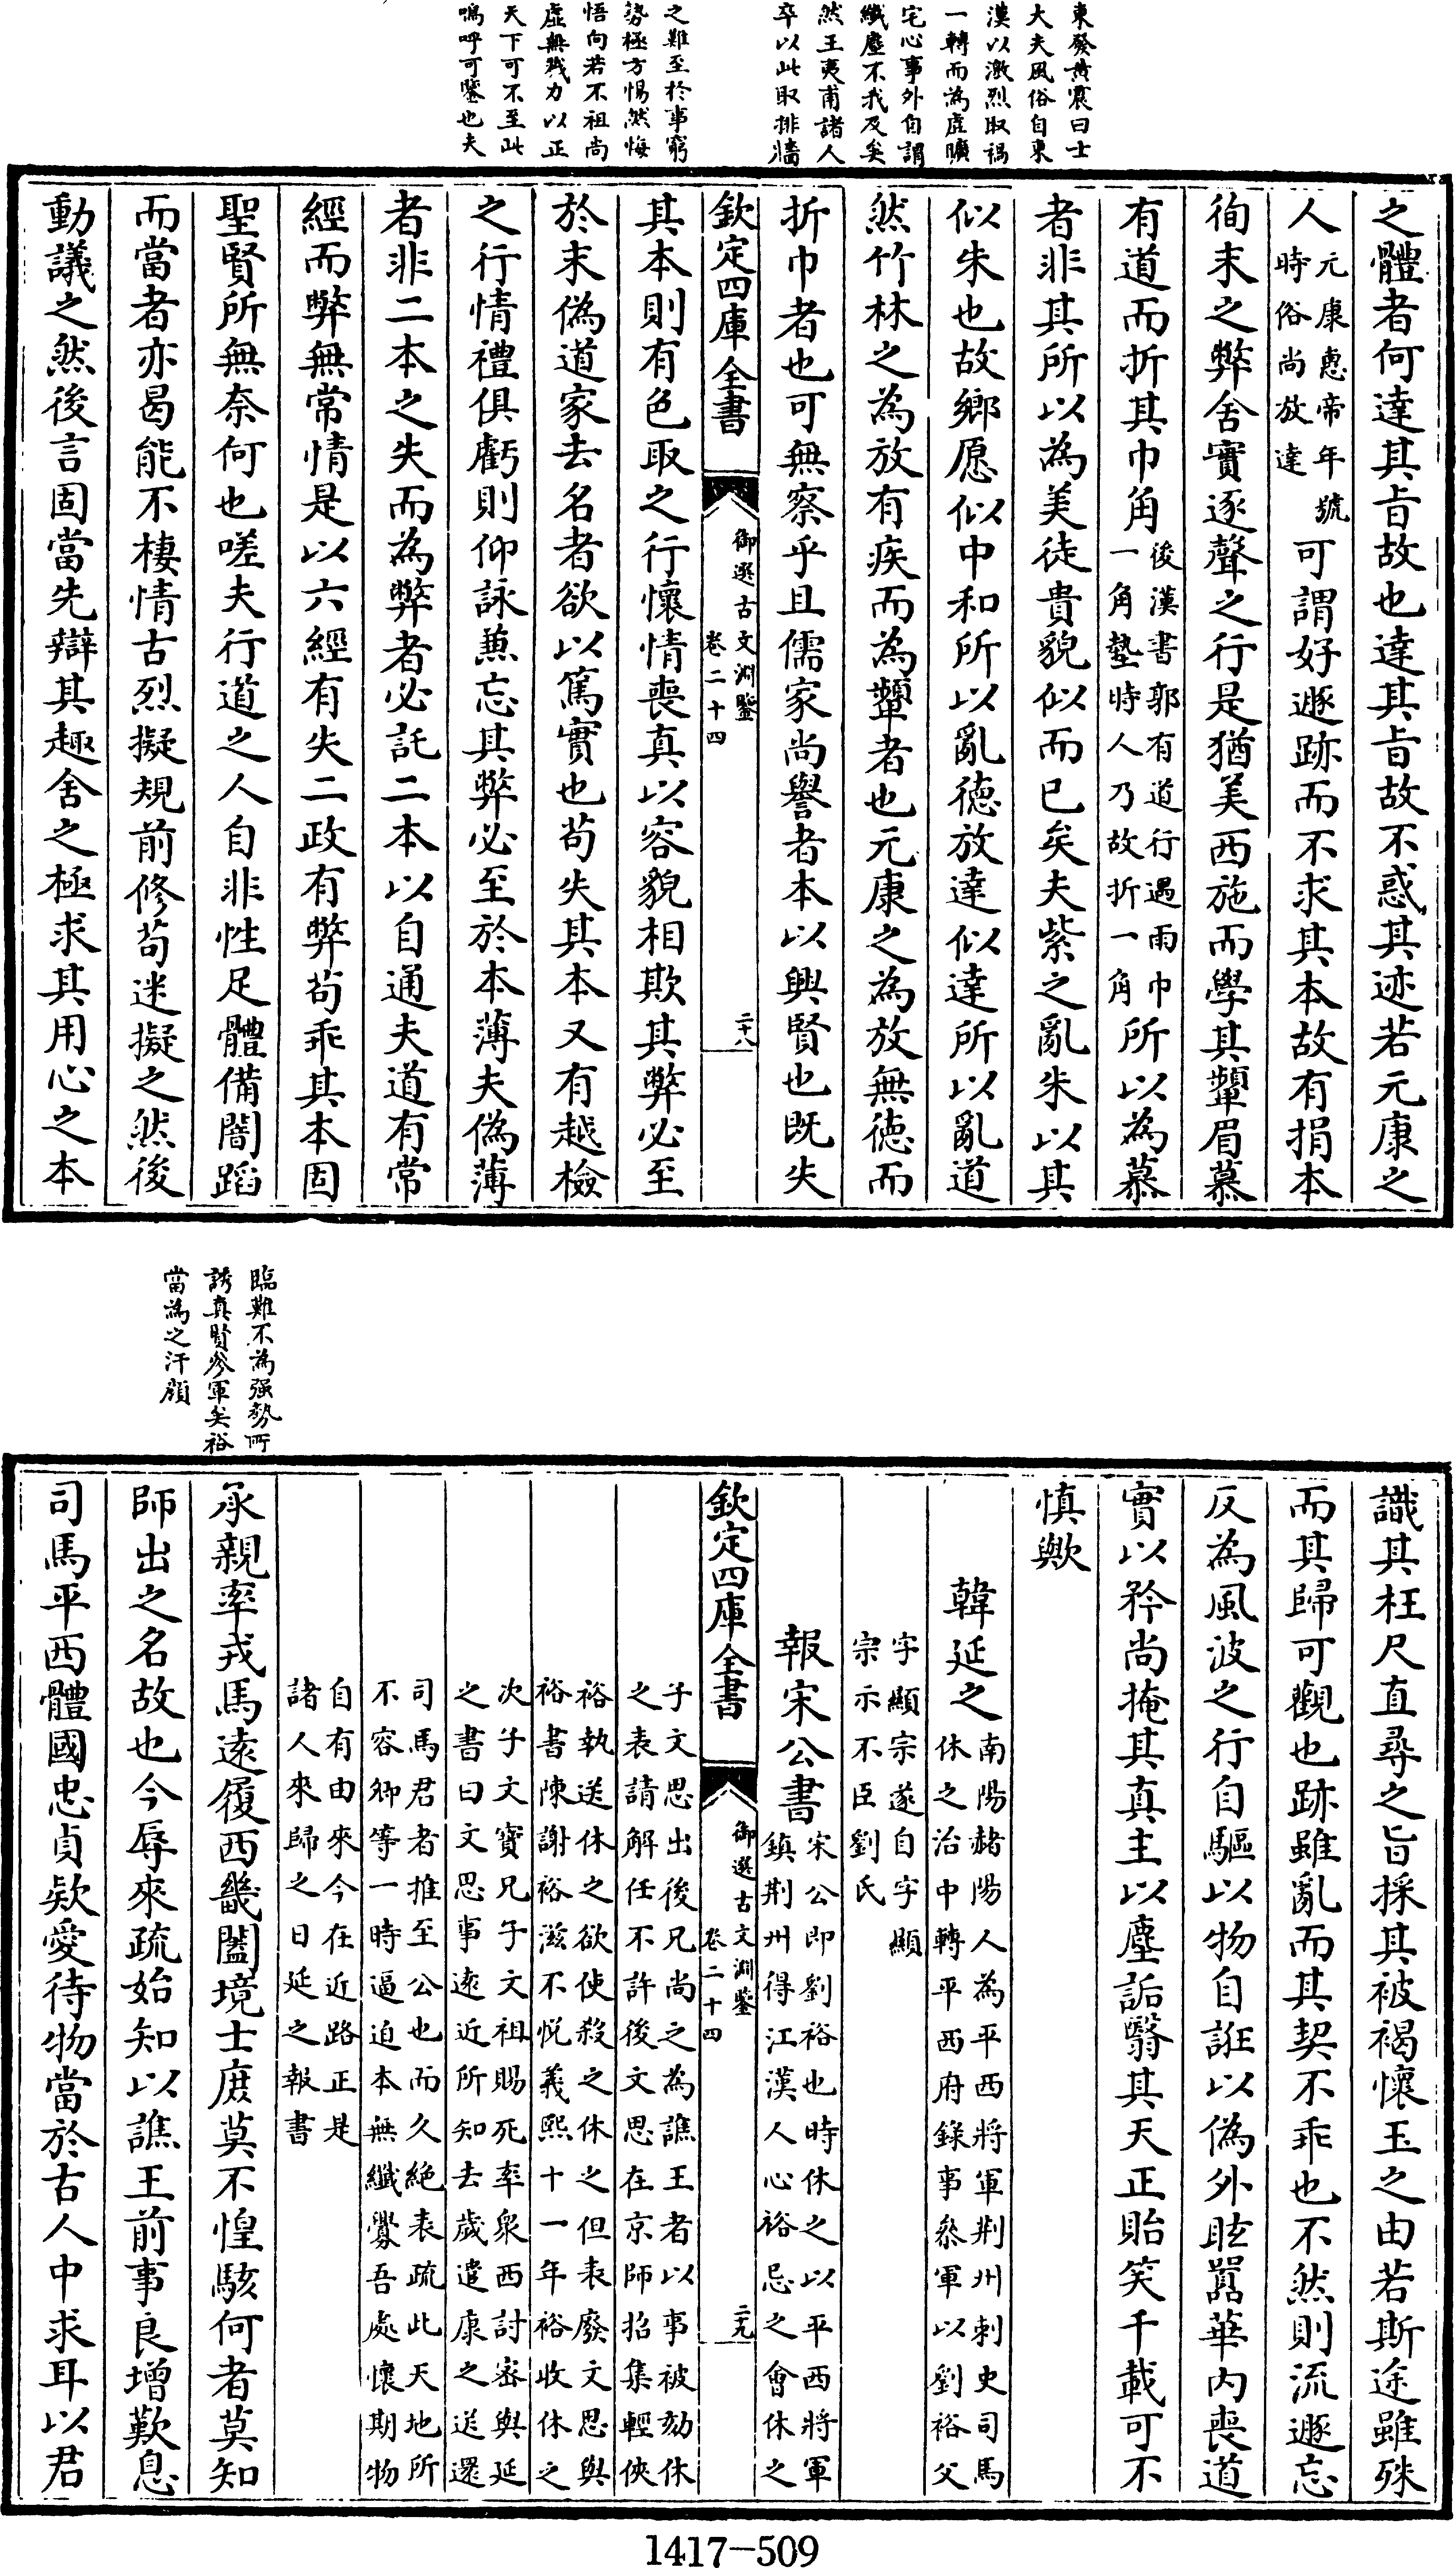 東發黃震曰士
大夫風俗自東
漢以激烈取禍
一轉而為虛曠
宅心事外自謂
纎塵不我及矣
然王夷甫諸人
卒以此取排牆
之難至於事窮
勢極方惕然悔
悟向若不祖尚
虛無戮力以正
天下可不至此
嗚呼可鑒也夫
之體者何達其旨故也達其旨故不惑其迹若元康之
人元康惠帝年號時俗尚放達可謂好遯跡而不求其本故有捐本
徇末之弊舍實逐聲之行是猶美西施而學其顰眉慕
有道而折其巾角後漢書郭有道行遇雨巾一角墊時人乃故折一角所以為慕
者非其所以為美徒貴貌似而已矣夫紫之亂朱以其
似朱也故鄉愿似中和所以亂徳放達似達所以亂道
然竹林之為放有疾而為顰者也元康之為放無徳而
折巾者也可無察乎且儒家尚譽者本以興賢也既失
欽定四庫全書
御選古文淵鑒
卷二十四
二十八
其本則有色取之行懷情喪真以容貌相欺其弊必至
於末偽道家去名者欲以篤實也苟失其本又有越檢
之行情禮俱虧則仰詠兼忘其弊必至於本薄夫偽薄
者非二本之失而為弊者必託二本以自通夫道有常
經而弊無常情是以六經有失二政有弊苟乖其本固
聖賢所無奈何也嗟夫行道之人自非性足體備闇蹈
而當者亦曷能不棲情古烈擬規前修苟迷擬之然後
動議之然後言固當先辯其趣舍之極求其用心之本
臨難不為强勢所
誘真賢參軍矣裕
當為之汗顔
識其枉尺直尋之旨採其被褐懷玉之由若斯途雖殊
而其歸可觀也跡雖亂而其契不乖也不然則流遯忘
反為風波之行自驅以物自誑以偽外眩囂華内喪道
實以矜尚掩其真主以塵詬翳其天正貽笑千載可不
慎歟
韓延之南陽赭陽人為平西將軍荆州刺史司馬休之治中轉平西府錄事叅軍以劉裕父
字顯宗遂自字顯宗示不臣劉氏
報宋公書宋公即劉裕也時休之以平西將軍鎮荆州得江漢人心裕忌之會休之
欽定四庫全書
御選古文淵鑒
卷二十四
二十九
子文思出後兄尚之為譙王者以事被劾休之表請解任不許後文思在京師招集輕俠
裕執送休之欲使殺之休之但表廢文思與裕書陳謝裕滋不悅義熙十一年裕收休之
次子文寶兄子文祖賜死率衆西討密與延之書曰文思事逺近所知去歲遣康之送還
司馬君者推至公也而久絶表疏此天地所不容卿等一時逼迫本無纎釁吾處懷期物
自有由來今在近路正是諸人來歸之日延之報書
承親率戎馬逺履西畿闔境士庶莫不惶駭何者莫知
師出之名故也今辱來疏始知以譙王前事良增歎息
司馬平西體國忠貞欵愛待物當於古人中求耳以君
1417-509